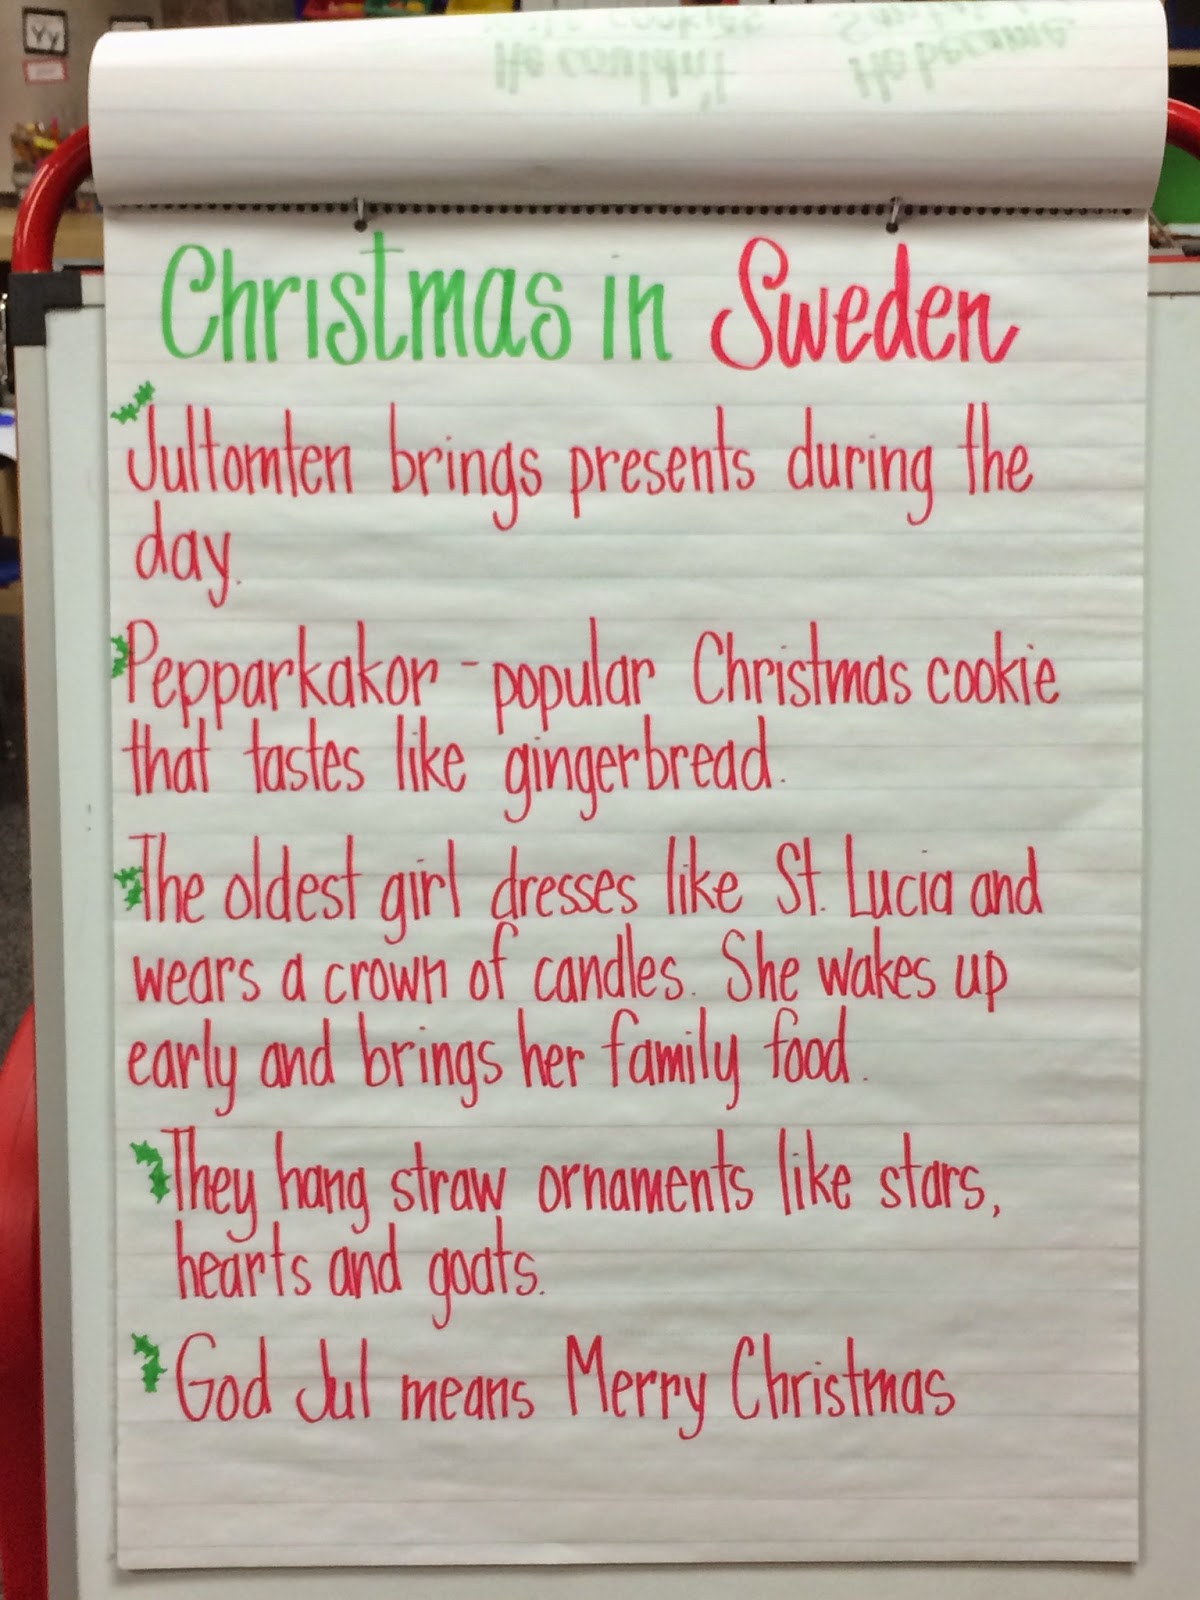 Yy
He couldn't
He became
Christmas in Sweden
Jultomten brings presents during the
day.
Pepparkakor - popular Christmas cookie
that tastes like gingerbread.
The oldest girl dresses like St. Lucia and
wears a crown of candles. She wakes up
early and brings her family food.
They hang straw ornaments like stars,
hearts and goats.
God Jul means Merry Christmas